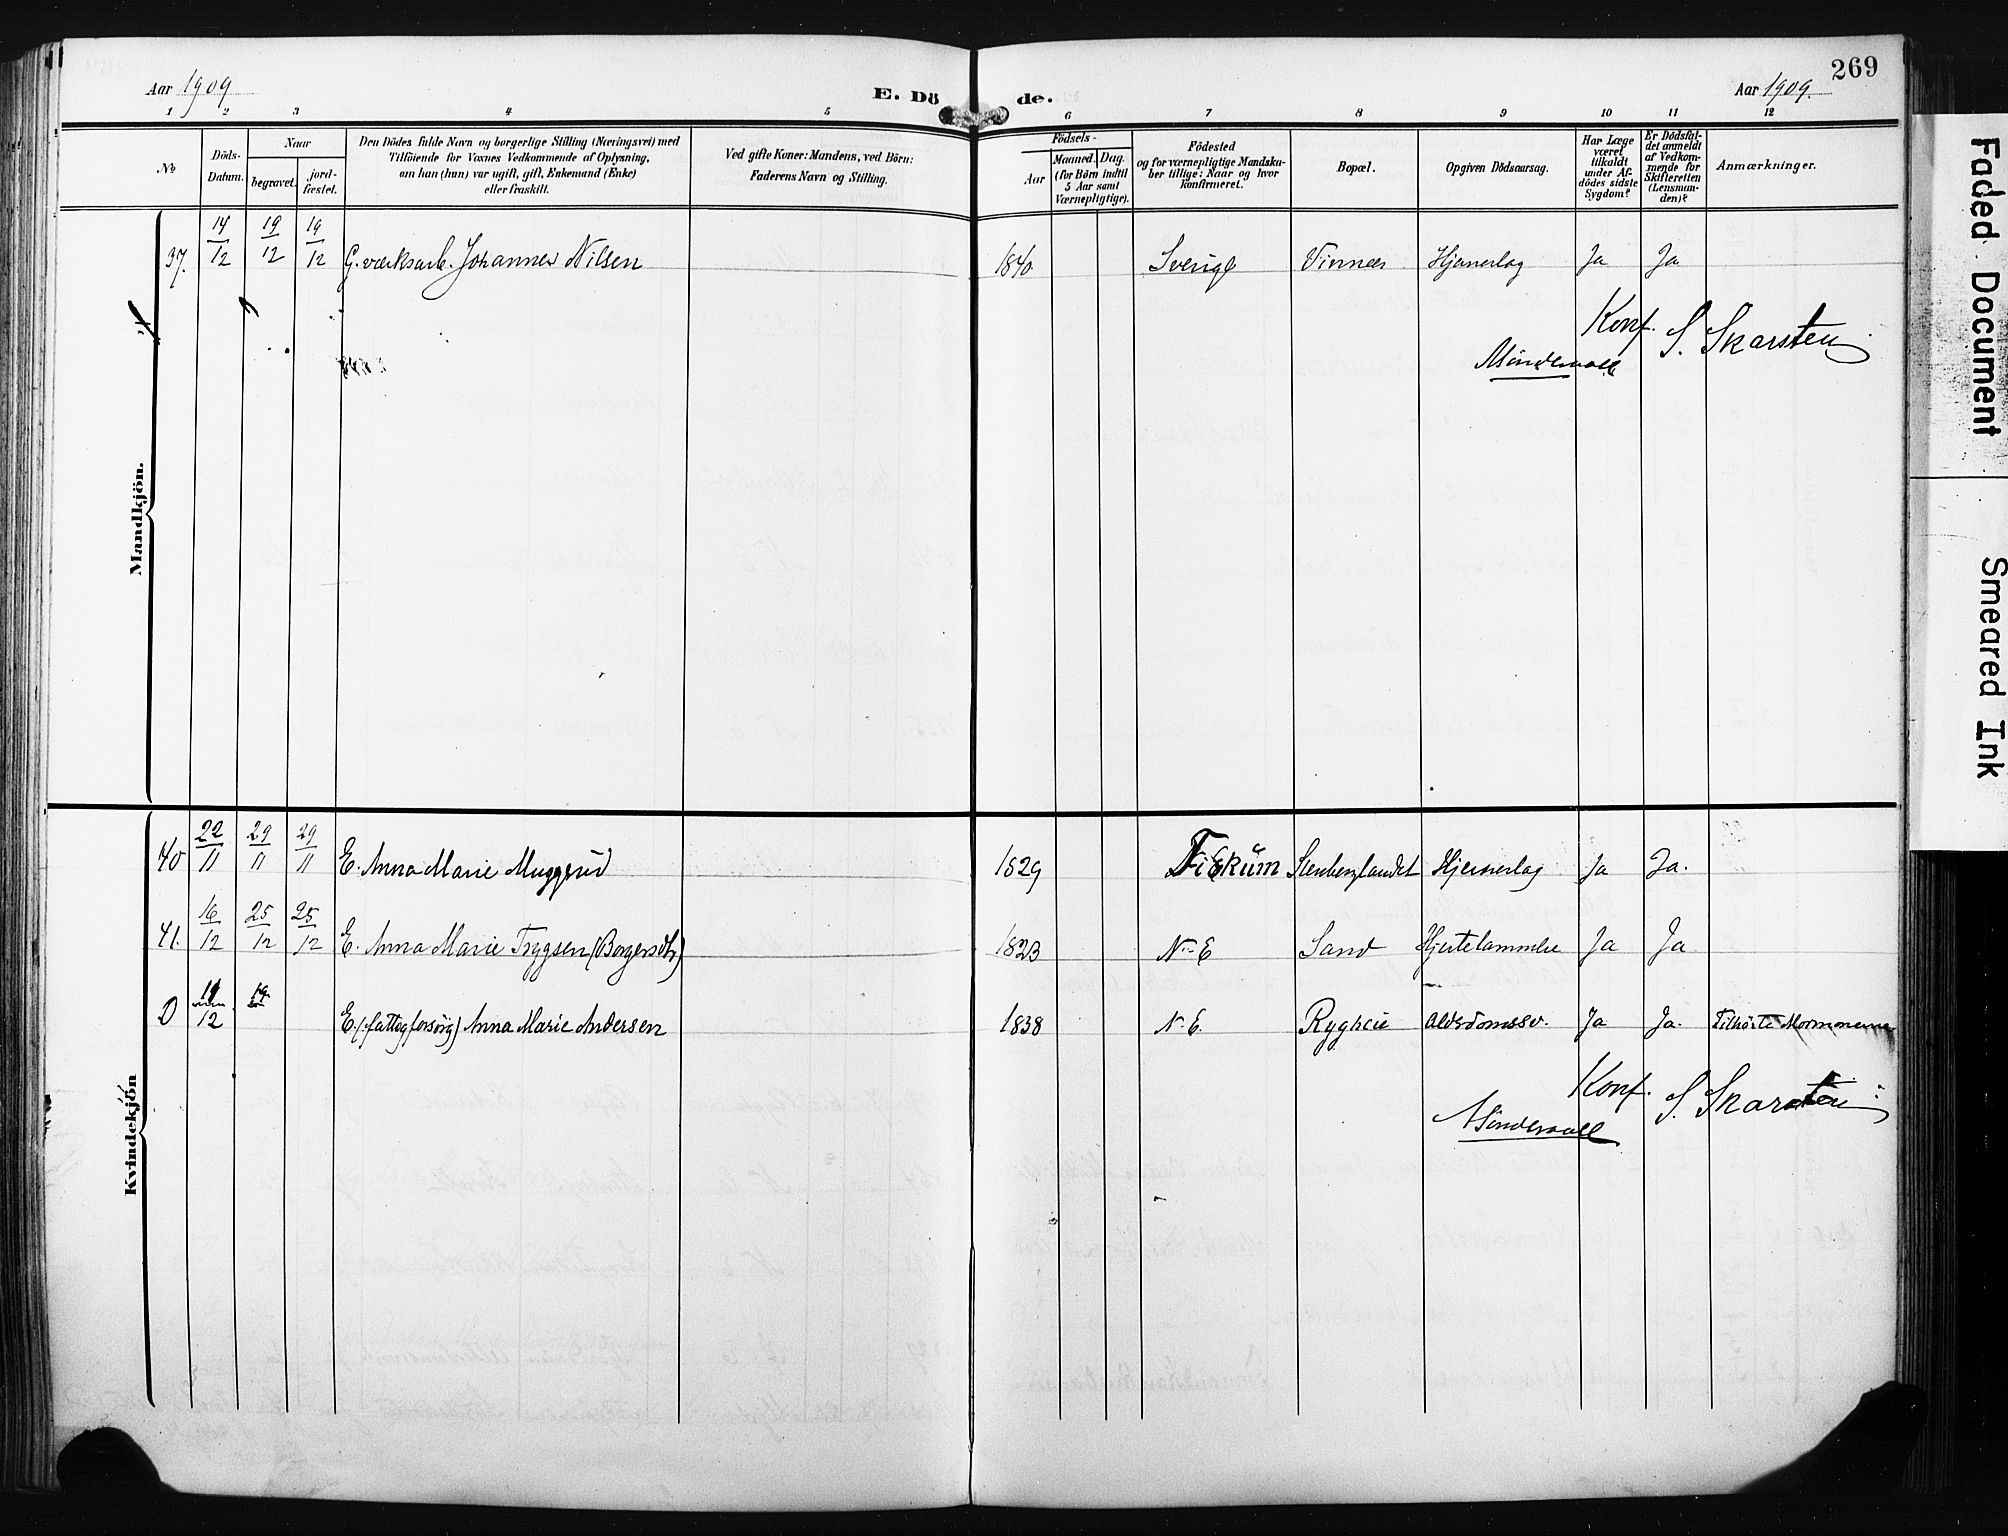 269
Aar 1909
E. Döde.
Aar 1909.
1 2 3 4 5 6 7 8 9 10 11 12
No
Döds-Datum.
Naar
begravet.
jordfæstet.
Den Dödes fulde Navn og borgerlige Stilling (Næringsvei) med
Tilföiende for Voxnes Vedkommende af Oplysning,
om han (hun) var ugift, gift, Enkemand (Enke)
eller fraskilt.
Ved gifte Koner: Mandens, ved Börn:
Faderens Navn og Stilling.
Födsels-
Aar
Maaned. Dag.
(for Börn indtil
5 Aar samt
Værnepligtige).
Födested
og for værnepligtige Mandskaber tillige: Naar og hvor
konfirmeret.
Bopæl.
Opgiven Dödsaarsag.
Har Læge
været
tilkaldt
under Afdödes sidste
Sygdom?
Er Dödsfaldet anmeldt
af Vedkommende for
Skifteretten
(Lensmanden)?
Anmærkninger.
Mandkjön.
37. 14/12 19/12 19/12 G.værksarb. Johannes Nilsen 1840 Sverige Vinnæs Hjernerlag Ja Ja
Konf. S. Skarsten
Kvindekjön
40 22/11 29/11 29/11 E. Anna Marie Muggerud 1829 Fiskum Stenberglandet Hjernerlag Ja Ja.
41. 16/12 25/12 25/12 E. Anna Marie Trygsen (Borgersdtr) 1823 N. E Sand Hjertelammelse Ja Ja
D 11/12 19 E. (fattigforsørg) Anna Marie Andersen 1838 N. E. Ryghei Alderdomssv. Ja Ja. Tilhørte Mormonerne
Konf. S. Skarsten
Faded Document
Smeared Ink